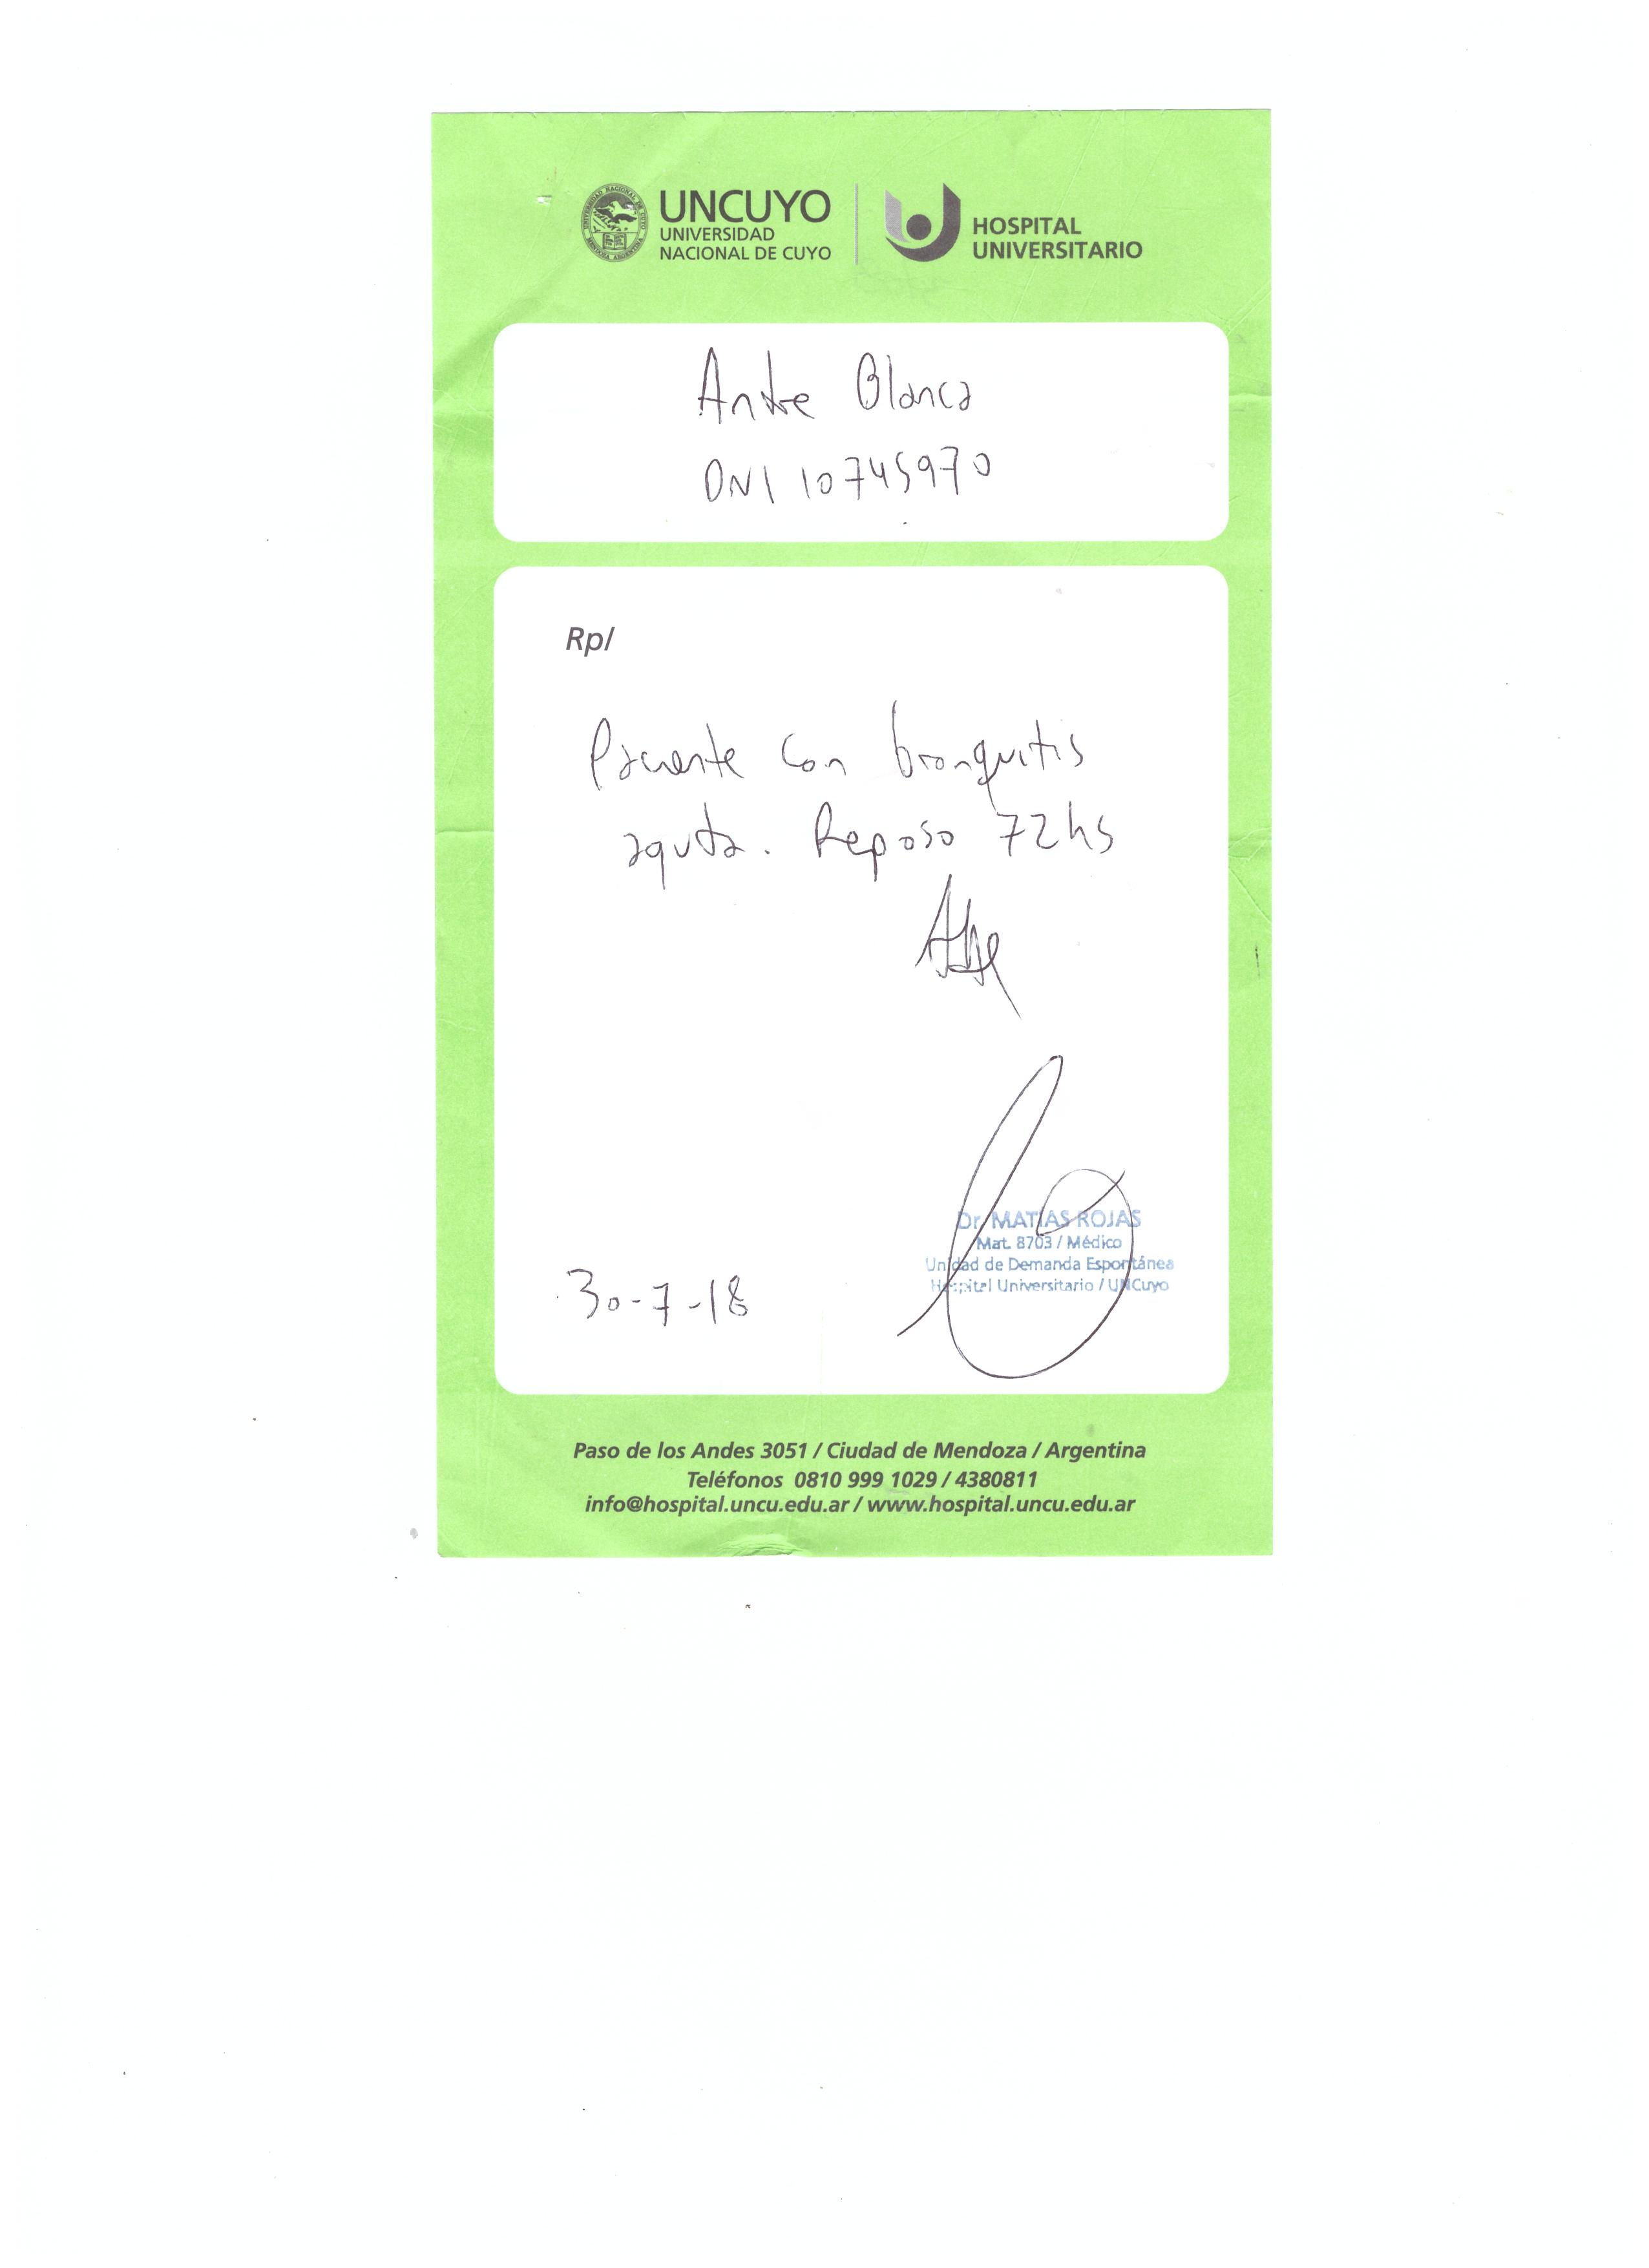 UNCUYO
UNIVERSIDAD
NACIONAL DE CUYO
HOSPITAL
UNIVERSITARIO
Andre Blanca
DNI 10745970
Rp/
Paciente con bronquitis
aguda. Reposo 72hs
30-7-18
Dr. MATIAS ROJAS
Mat. 8703 / Médico
Unidad de Demanda Espontánea
Hospital Universitario / UNCuyo
Paso de los Andes 3051 / Ciudad de Mendoza / Argentina
Teléfonos 0810 999 1029 / 4380811
info@hospital.uncu.edu.ar / www.hospital.uncu.edu.ar